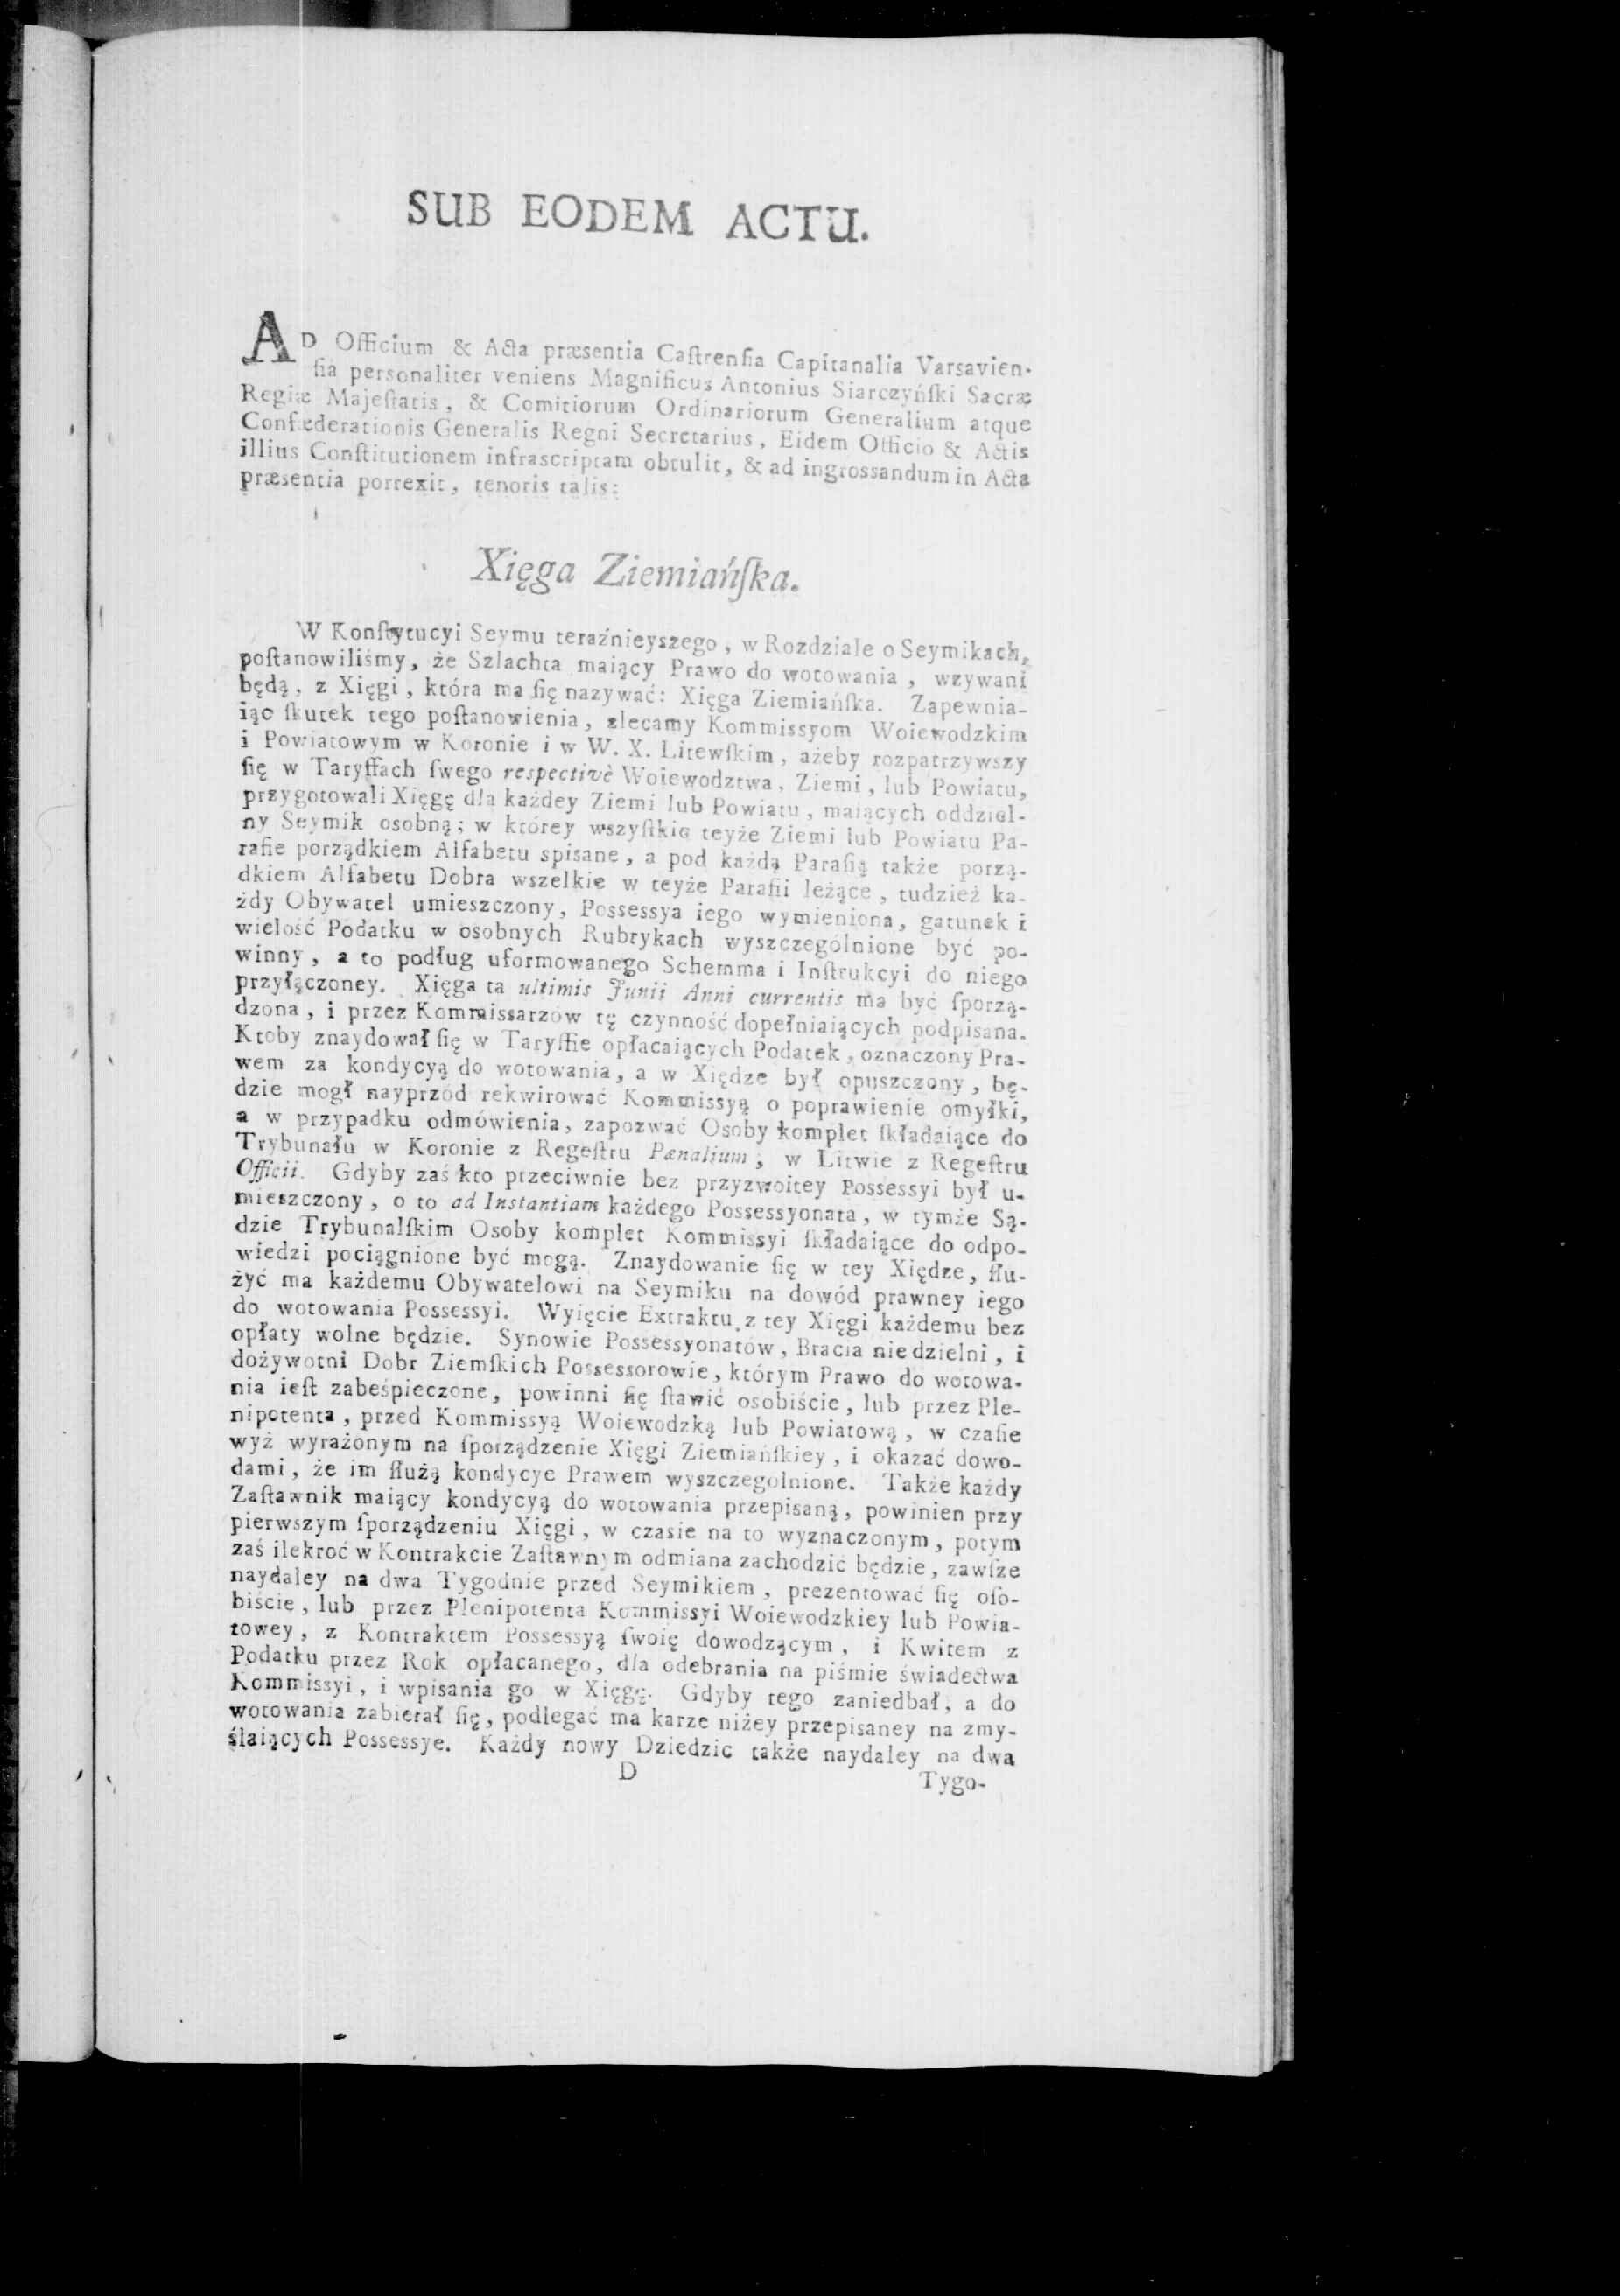 SUB EODEM ACTU.
AD Officium & Acta præsentia Caſtrenſia Capitanalia Varsavien-
ſia personaliter veniens Magnificus Antonius Siarczyńſki Sacræ
Regiæ Majeſtatis, & Comitiorum Ordinariorum Generalium atque
Confœderationis Generalis Regni Secretarius, Eidem Officio & Actis
illius Conſtitutionem infrascriptam obtulit, & ad ingrossandum in Acta
præsentia porrexit, tenoris talis:
Xięga Ziemiańſka.
W Konſtytucyi Seymu teraźnieyszego, w Rozdziale o Seymikach,
poſtanowiliśmy, że Szlachta maiący Prawo do wotowania, wzywani
będą, z Xięgi, która ma ſię nazywać: Xięga Ziemiańſka. Zapewnia-
iąc ſkutek tego poſtanowienia, zlecamy Kommissyom Woiewodzkim
i Powiatowym w Koronie i w W. X. Litewſkim, ażeby rozpatrzywszy
ſię w Taryffach ſwego respectivè Woiewodztwa, Ziemi, lub Powiatu,
przygotowali Xięgę dla każdey Ziemi lub Powiatu, maiących oddziel-
ny Seymik osobną; w którey wszyſtkie teyże Ziemi lub Powiatu Pa-
rafie porządkiem Alfabetu spisane, a pod każdą Parafią także porzą-
dkiem Alfabetu Dobra wszelkie w teyże Parafii leżące, tudzież ka-
żdy Obywatel umieszczony, Possessya iego wymieniona, gatunek i
wielość Podatku w osobnych Rubrykach wyszczególnione być po-
winny, a to podług uformowanego Schemma i Inſtrukcyi do niego
przyłączoney. Xięga ta ultimis Junii Anni currentis ma być ſporzą-
dzona, i przez Kommissarzów tę czynność dopełniaiących podpisana.
Ktoby znaydował ſię w Taryffie opłacaiących Podatek, oznaczony Pra-
wem za kondycyą do wotowania, a w Xiędze był opuszczony, bę-
dzie mogł nayprzód rekwirować Kommissyą o poprawienie omyłki,
a w przypadku odmówienia, zapozwać Osoby komplet ſkładaiące do
Trybunału w Koronie z Regeſtru Pænalium, w Litwie z Regeſtru
Officii. Gdyby zaś kto przeciwnie bez przyzwoitey Possessyi był u-
mieszczony, o to ad Instantiam każdego Possessyonata, w tymże Są-
dzie Trybunalſkim Osoby komplet Kommissyi ſkładaiące do odpo-
wiedzi pociągnione być mogą. Znaydowanie ſię w tey Xiędze, ſłu-
żyć ma każdemu Obywatelowi na Seymiku na dowód prawney iego
do wotowania Possessyi. Wyięcie Extraktu z tey Xięgi każdemu bez
opłaty wolne będzie. Synowie Possessyonatow, Bracia nie dzielni, i
dożywotni Dobr Ziemſkich Possessorowie, którym Prawo do wotowa-
nia ieſt zabeśpieczone, powinni ſię ſtawić osobiście, lub przez Ple-
nipotenta, przed Kommissyą Woiewodzką lub Powiatową, w czaſie
wyż wyrażonym na ſporządzenie Xięgi Ziemiańſkiey, i okazać dowo-
dami, że im ſłużą kondycye Prawem wyszczegolnione. Także każdy
Zaſtawnik maiący kondycyą do wotowania przepisaną, powinien przy
pierwszym ſporządzeniu Xięgi, w czasie na to wyznaczonym, potym
zaś ilekroć w Kontrakcie Zaſtawnym odmiana zachodzić będzie, zawſze
naydaley na dwa Tygodnie przed Seymikiem, prezentować ſię oſo-
biście, lub przez Plenipotenta Kommissyi Woiewodzkiey lub Powia-
towey, z Kontraktem Possessyą ſwoię dowodzącym, i Kwitem z
Podatku przez Rok opłacanego, dla odebrania na piśmie świadectwa
Kommissyi, i wpisania go w Xięgę. Gdyby tego zaniedbał, a do
wotowania zabierał ſię, podlegać ma karze niżey przepisaney na zmy-
ślaiących Possessye. Każdy nowy Dziedzic także naydaley na dwa
D
Tygo-